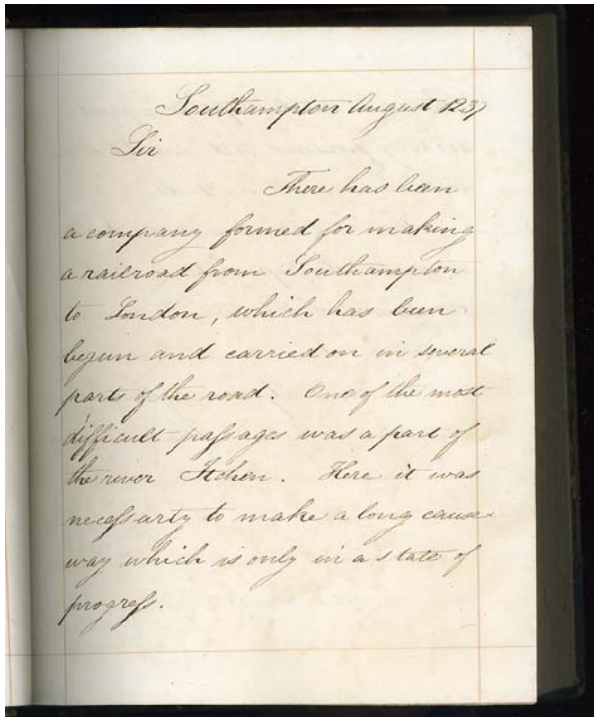 Southampton August 1237
Sir
There has been
a company formed for making
a railroad from Southampton
to London, which has been
begun and carried on in several
parts of the road. One of the most
difficult paſsages was a part of
the river Itchen. Here it was
neceſsarty to make a long cause
way which is only in a state of
progreſs.